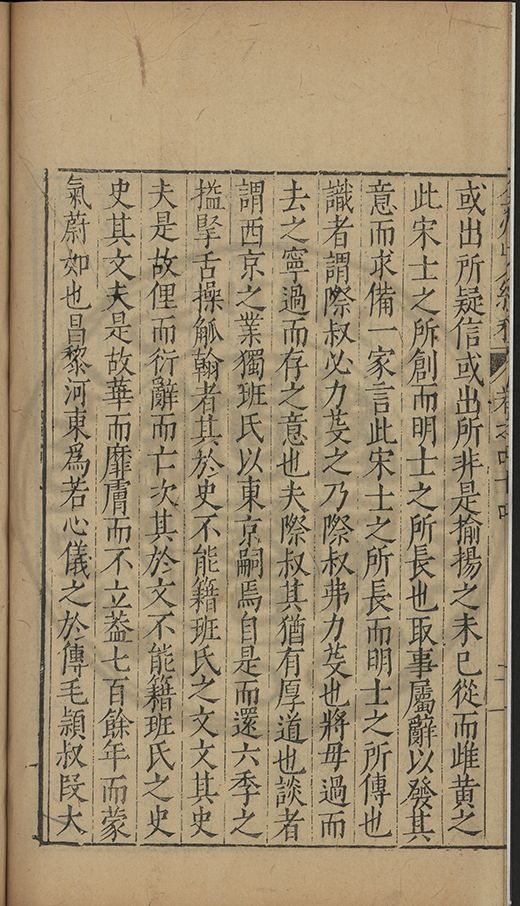 或出所疑信或出所非是揄揚之未已從而雌黃之
此宋士之所創而明士之所長也取事屬辭以發其
意而求備一家言此宋士之所長而明士之所傳也
識者謂際叔必力芟之乃際叔弗力芟也將毋過而
去之寧過而存之意也夫際叔其猶有厚道也談者
謂西京之業獨班氏以東京嗣焉自是而還六季之
搤掔舌操觚翰者其於史不能籍班氏之文文其史
夫是故俚而衍辭而亡次其於文不能籍班氏之史
史其文夫是故華而靡膚而不立葢七百餘年而蒙
氣蔚如也昌黎河東爲若心儀之於傳毛穎叔段大